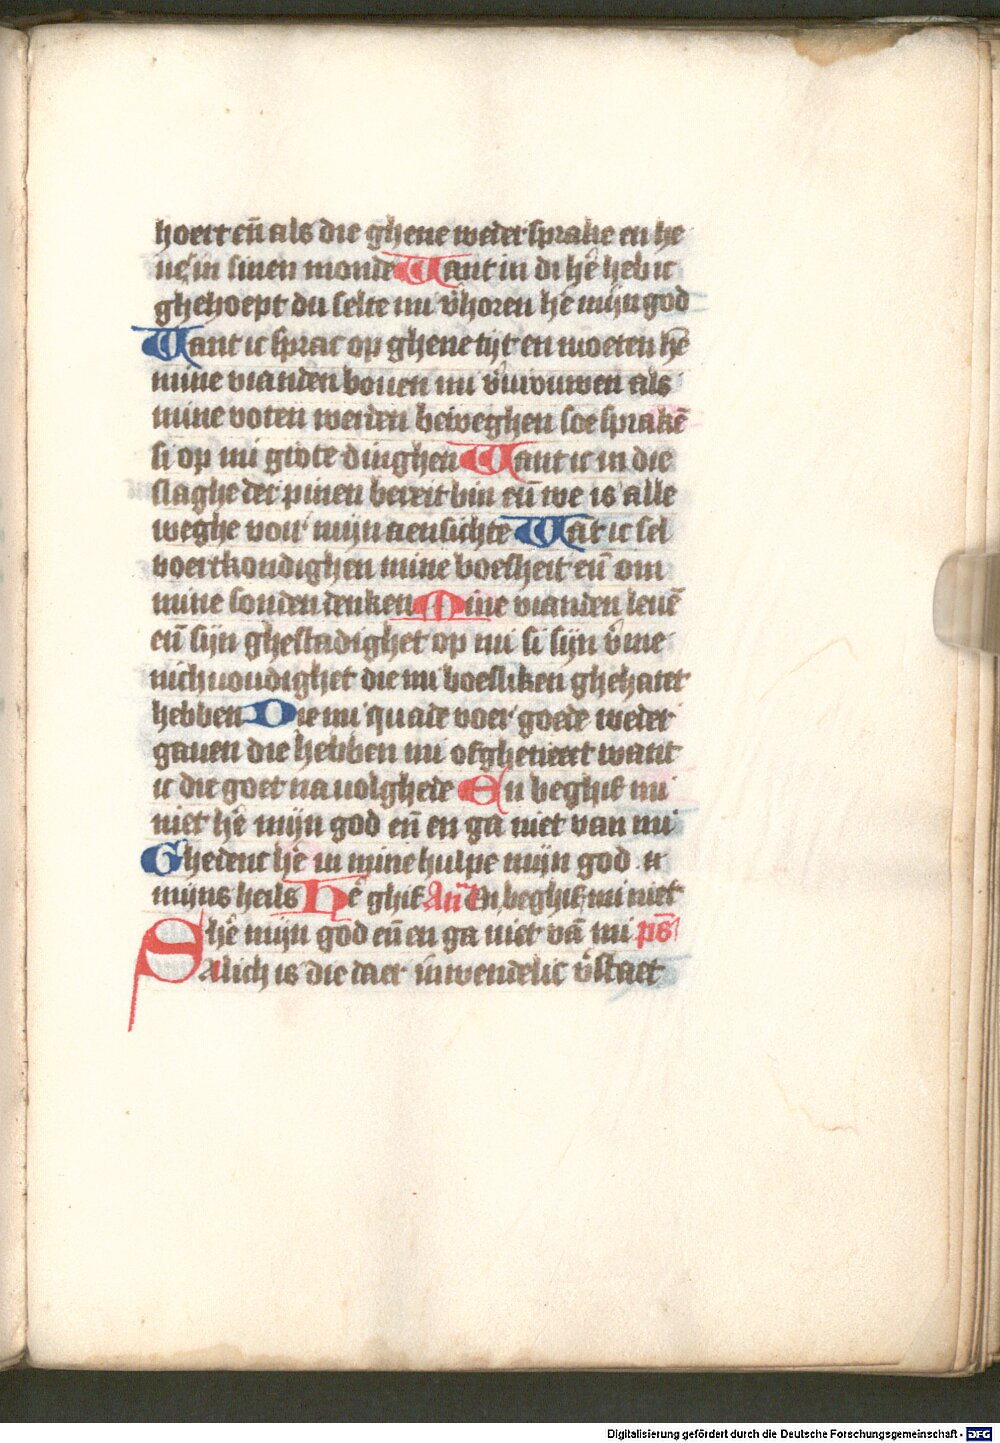 hoert eñ als die ghene weder sprake en he
uet in sinen monde Want in di hē heb ic
ghehoept du selte mi v̓horen hē mijn god
Want ic sprac op ghene tijt en moeten hē
mine vianden bouen mi v̓urouwen als
mine voten werden beweghen soe sprakē
si op mi grote dinghen Want ic in die
slaghe der pinen bereit bin eñ we is alle
weghe vor mijn aensichte Wāt ic sel
voertkondighen mine boesheit eñ om
mine sonden denken Mine vianden leuē
eñ sijn ghestadighet op mi si sijn v̓me
nichuoudighet die mi boesliken ghehatet
hebben Die mi quade voer goede weder
gauen die hebben mi ofghetreert want
ic die goet na volghede En beghif mi
niet hē mijn god eñ en ga niet van mi
Ghedent hē in mine hulpe mijn god
mijns heils Hē ghif Añ En beghif mi niet
hē mijn god eñ en ga niet vā mi ps̄
Salich is die daer inwendelic v̓staet
Digitalisierung gefördert durch die Deutsche Forschungsgemeinschaft - DFG